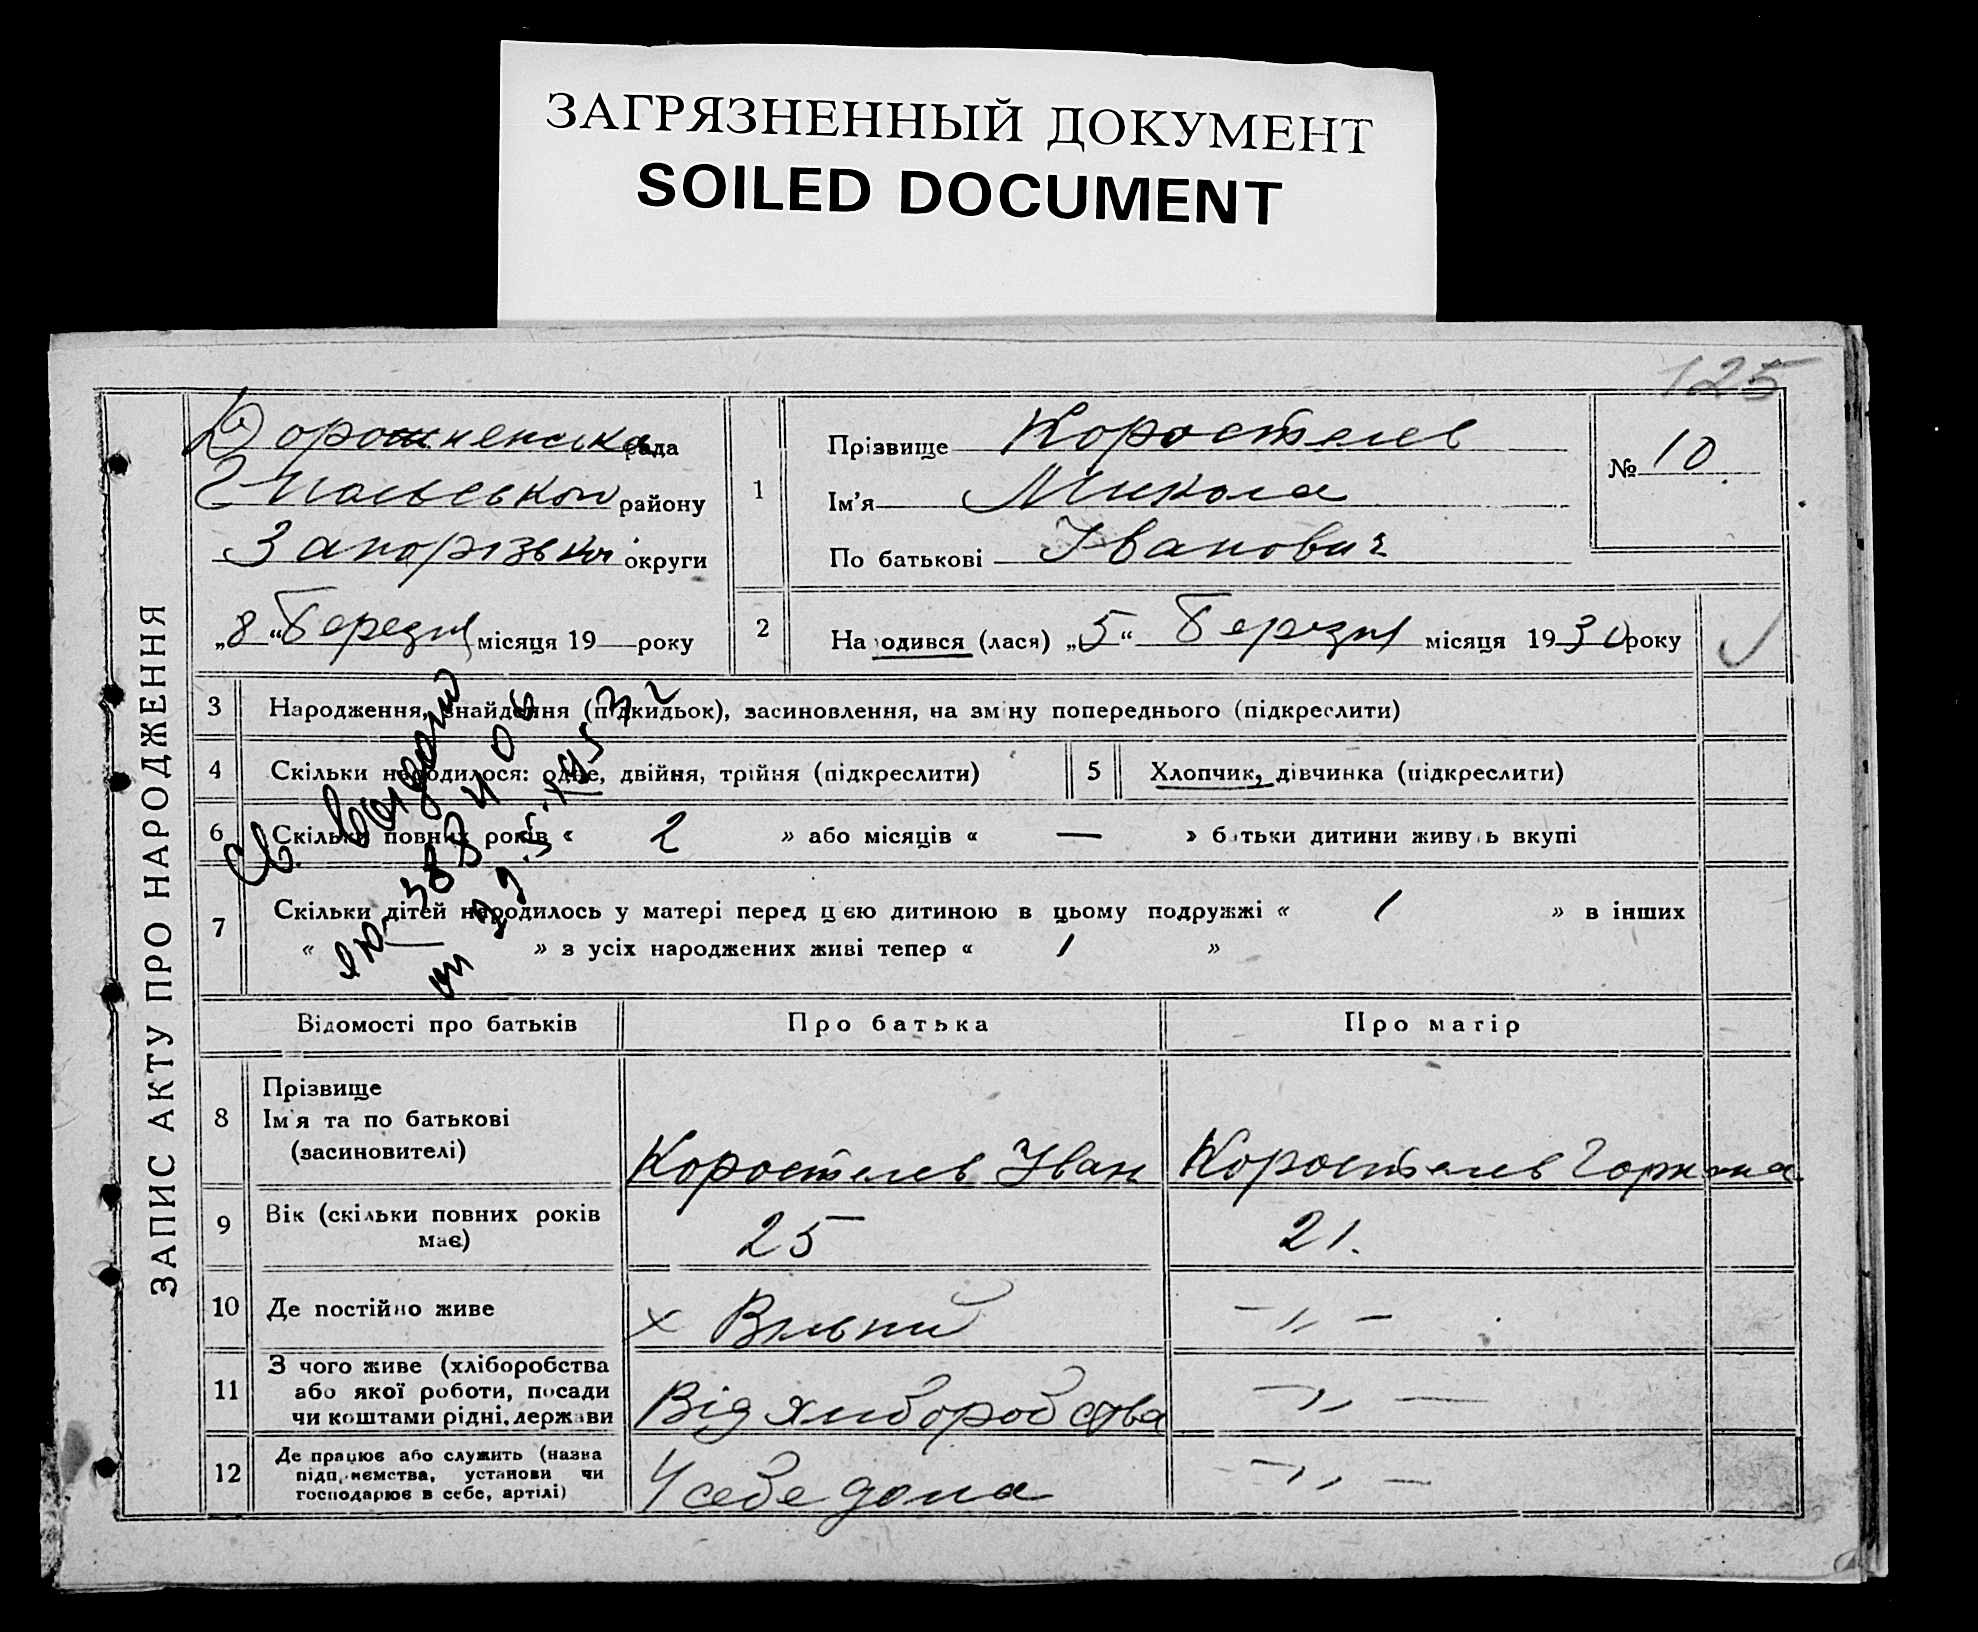 ЗАГРЯЗНЕННЫЙ ДОКУМЕНТ
SOILED DOCUMENT
125
ЗАПИС АКТУ ПРО НАРОДЖЕННЯ
рада
району
Запорізької округи
„8“ Березня місяця 19 року
1
Прізвище Коростелев
Ім’я Микола
По батькові Іванович
№ 10
2
Народився (лася) „5“ Березня місяця 1930 року
3 Народження, знайдення (підкидьок), засиновлення, на зміну попереднього (підкреслити)
4 Скільки народилося: одне, двійня, трійня (підкреслити)
5 Хлопчик, дівчинка (підкреслити)
6 Скільки повних років « 2 » або місяців « — » батьки дитини живуть вкупі
7 Скільки дітей народилось у матері перед цією дитиною в цьому подружжі « 1 » в інших
« — » з усіх народжених живі тепер « 1 »
Відомості про батьків
Про батька
Про матір
8 Прізвище
Ім’я та по батькові
(засиновителі)
Коростелев Іван
Коростелев
9 Вік (скільки повних років
має)
25
21.
10 Де постійно живе
х Вільний
— „ —
11 З чого живе (хліборобства
або якої роботи, посади
чи коштами рідні, держави
Від хліборобства
— „ —
12 Де працює або служить (назва
підприємства, установи чи
господарює в себе, артілі)
У себе дома
— „ —